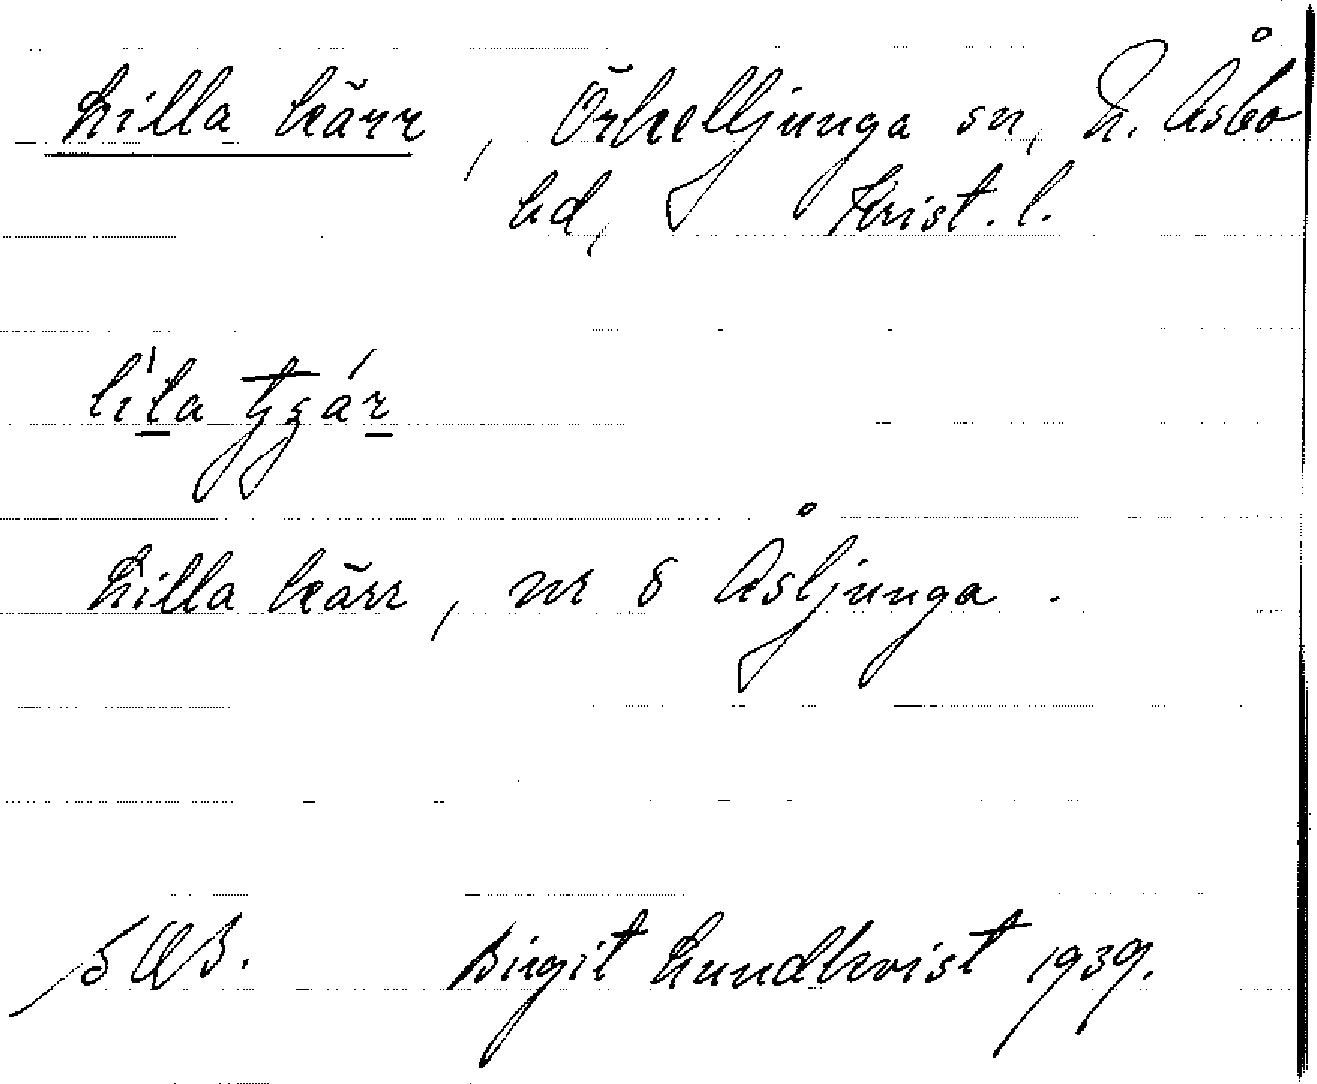 Lilla kärr, Örkelljunga sn, N. Åsbo
hd, Krist. l.
Lilla kärr, nr 8 Åsljunga.
Birgit Lundkvist 1939.